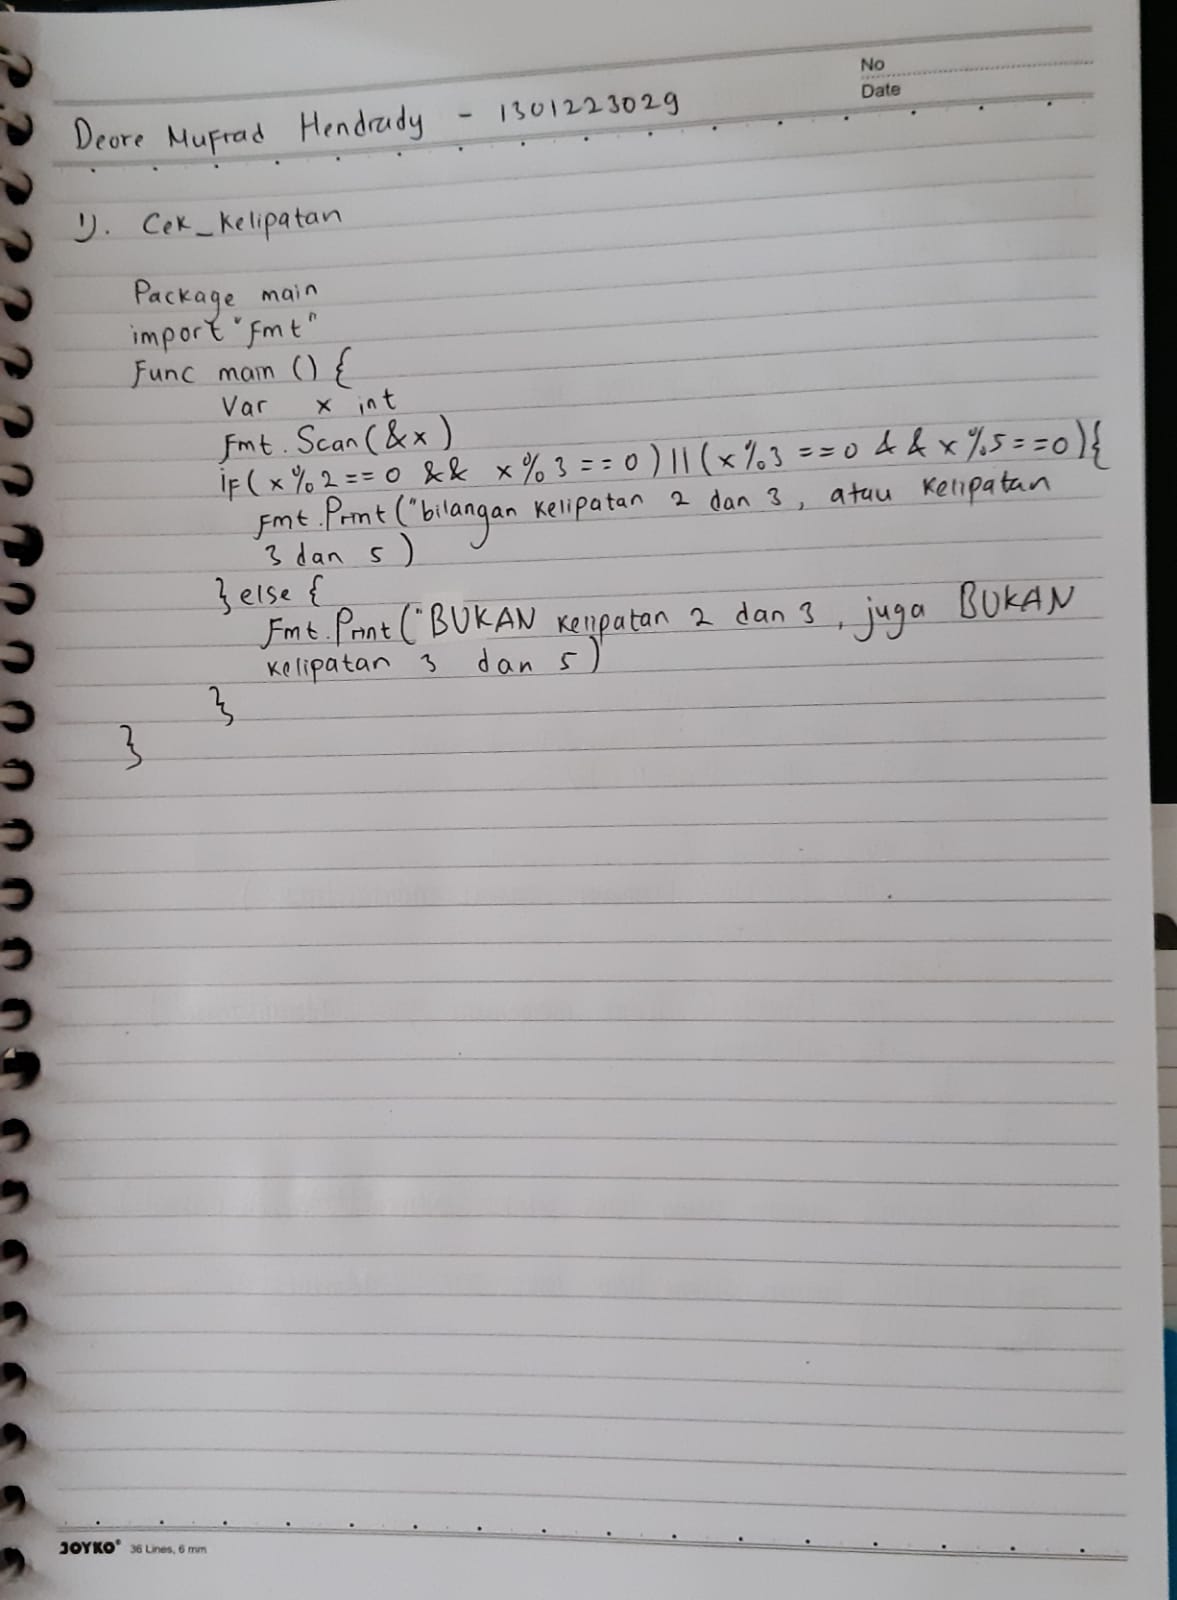 No
Date
Deore Mufrad Hendrady - 1301223029
1). Cek_Kelipatan
Package main
import "fmt"
Func main () {
Var x int
Fmt. Scan (&x)
if ( x % 2 == 0 && x % 3 == 0 ) || ( x % 3 == 0 && x % 5 == 0 ) {
Fmt. Print ("bilangan kelipatan 2 dan 3, atau kelipatan
3 dan 5 )
} else {
Fmt. Print ("BUKAN kelipatan 2 dan 3, juga BUKAN
kelipatan 3 dan 5 )
}
}
JOYKO® 36 Lines, 6 mm